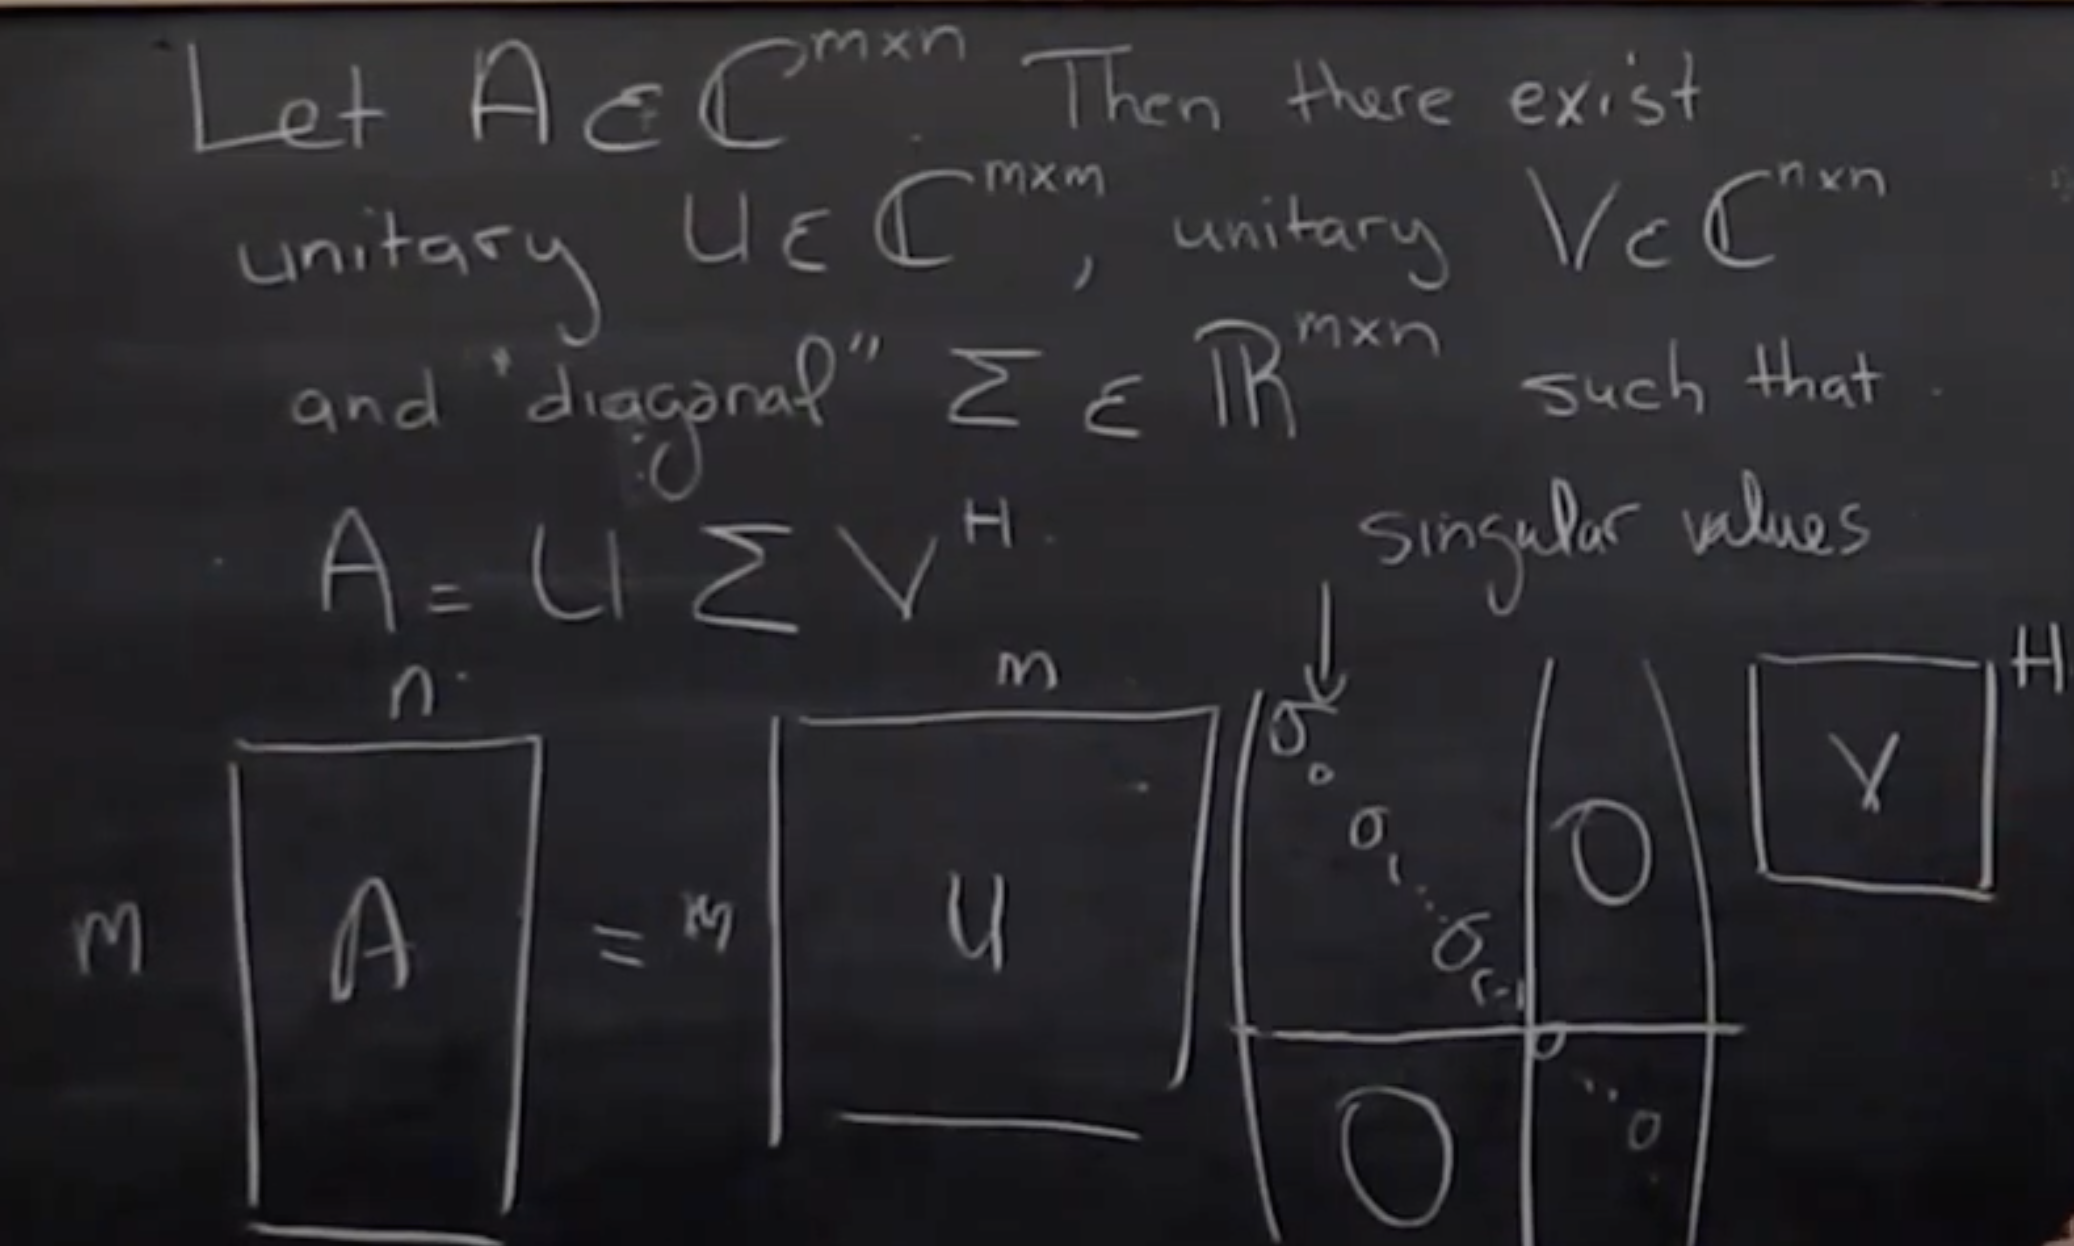 Let A ∈ ℂ^{m×n}. Then there exist
unitary U ∈ ℂ^{m×m}, unitary V ∈ ℂ^{n×n}
and "diagonal" Σ ∈ ℝ^{m×n} such that
A = U Σ V^H.
singular values
n
m
H
σ₀
V
σ₁
0
m
A
=
m
U
⋱
σ_{r-1}
0
⋱
0
0